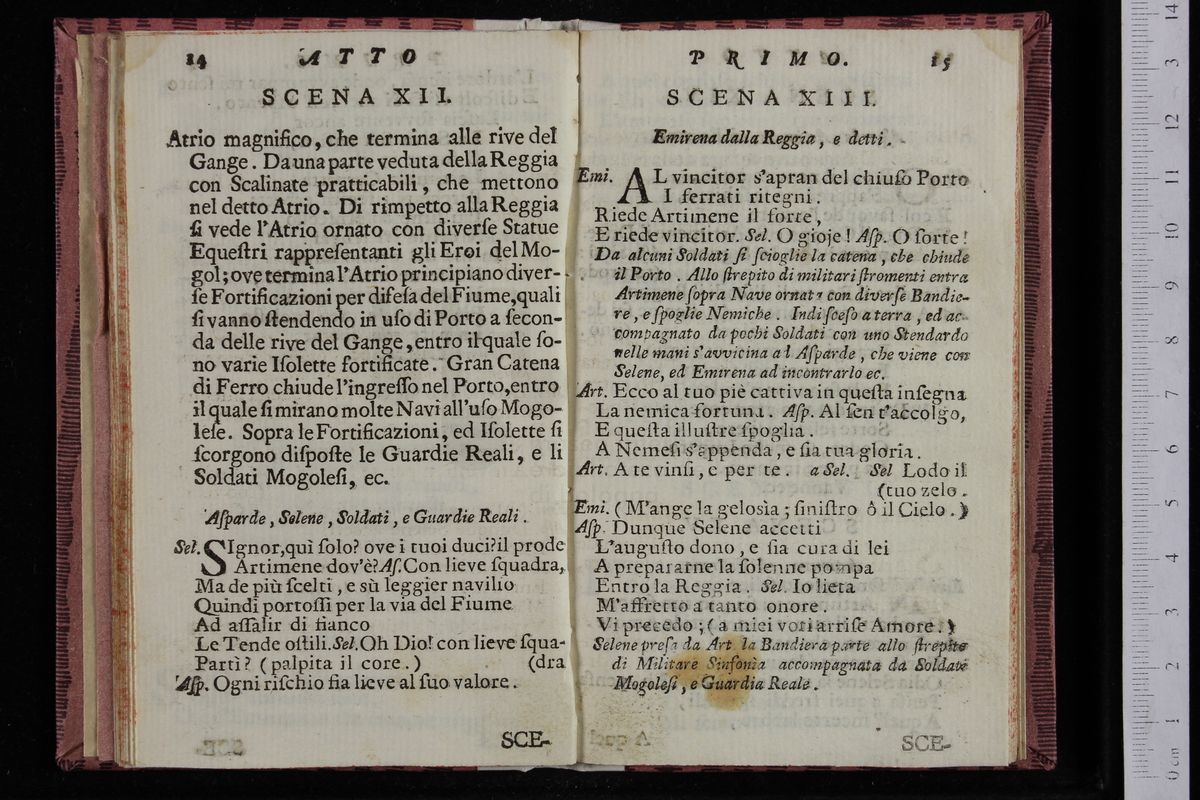 14 ATTO
SCENA XII.
Atrio magnifico, che termina alle rive del
Gange. Da una parte veduta della Reggia
con Scalinate pratticabili, che mettono
nel detto Atrio. Di rimpetto alla Reggia
ſi vede l'Atrio ornato con diverſe Statue
Equeſtri rappreſentanti gli Eroi del Mo-
gol; ove termina l'Atrio principiano diver-
ſe Fortificazioni per difeſa del Fiume, quali
ſi vanno ſtendendo in uſo di Porto a ſecon-
da delle rive del Gange, entro il quale ſo-
no varie Iſolette fortificate. Gran Catena
di Ferro chiude l'ingreſſo nel Porto, entro
il quale ſi mirano molte Navi all'uſo Mogo-
leſe. Sopra le Fortificazioni, ed Iſolette ſi
ſcorgono diſpoſte le Guardie Reali, e li
Soldati Mogoleſi, ec.
Aſparde, Selene, Soldati, e Guardie Reali.
Sel. SIgnor, quì ſolo? ove i tuoi duci? il prode
Artimene dov'è? Aſ. Con lieve ſquadra,
Ma de più ſcelti, e sù leggier navilio
Quindi portoſſi per la via del Fiume
Ad aſſalir di fianco
Le Tende oſtili. Sel. Oh Dio! con lieve ſqua-
Partì? (palpita il core.) (dra
Aſp. Ogni riſchio fia lieve al ſuo valore.
SCE-
PRIMO. 15
SCENA XIII.
Emirena dalla Reggia, e detti.
Emi. AL vincitor s'apran del chiuſo Porto
I ferrati ritegni.
Riede Artimene il forte,
E riede vincitor. Sel. O gioje! Aſp. O ſorte!
Da alcuni Soldati ſi ſcioglie la catena, che chiude
il Porto. Allo ſtrepito di militari ſtromenti entra
Artimene ſopra Nave ornata con diverſe Bandie-
re, e ſpoglie Nemiche. Indi ſceſo a terra, ed ac-
compagnato da pochi Soldati con uno Stendardo
nelle mani s'avvicina al Aſparde, che viene con
Selene, ed Emirena ad incontrarlo ec.
Art. Ecco al tuo piè cattiva in queſta inſegna
La nemica fortuna. Aſp. Al ſen t'accolgo,
E queſta illuſtre ſpoglia.
A Nemeſi s'appenda, e ſia tua gloria.
Art. A te vinſi, e per te. a Sel. Sel Lodo il
(tuo zelo.
Emi. (M'ange la gelosìa; ſiniſtro ô il Cielo.)
Aſp. Dunque Selene accetti
L'auguſto dono, e ſia cura di lei
A prepararne la ſolenne pompa
Entro la Reggia. Sel. Io lieta
M'affretto a tanto onore.
Vi precedo; (a miei voti arriſe Amore.)
Selene preſa da Art. la Bandiera parte allo ſtrepito
di Militare Sinfonìa accompagnata da Soldati
Mogoleſi, e Guardia Reale.
SCE-